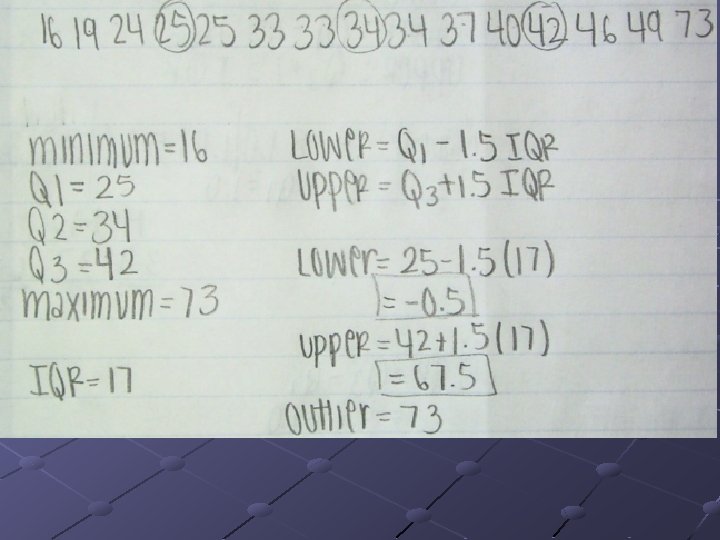 16 19 24 25 25 33 33 34 34 37 40 42 46 49 73
minimum = 16
Q1 = 25
Q2 = 34
Q3 = 42
maximum = 73
IQR = 17
Lower = Q1 - 1.5 IQR
Upper = Q3 + 1.5 IQR
Lower = 25 - 1.5 (17)
= -0.5
upper = 42 + 1.5 (17)
= 67.5
Outlier = 73